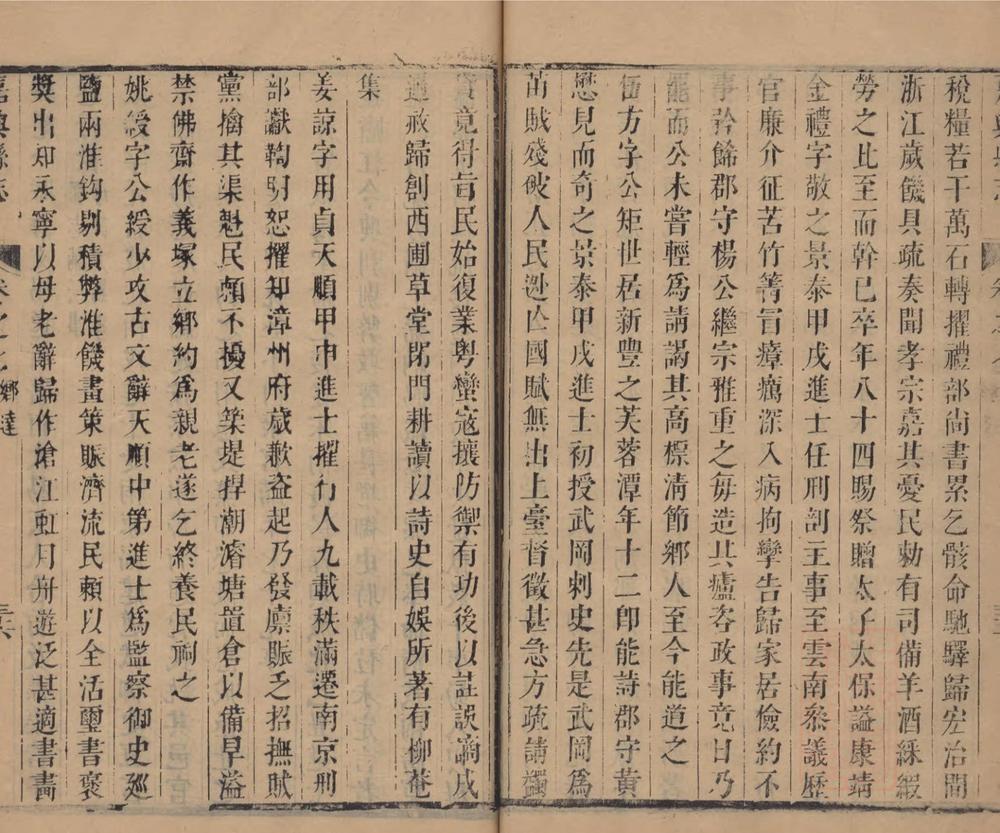 稅糧若干萬石轉擢禮部尚書累乞骸命馳驛歸宏治間
浙江歲饑具疏奏聞孝宗嘉其憂民勅有司備羊酒綵緞
勞之比至而幹已卒年八十四賜祭贈太子太保謚康靖
金禮字敬之景泰甲戌進士任刑部主事至雲南叅議歷
官廉介征苦竹箐冒瘴癘深入病拘攣告歸家居儉約不
事矜餙郡守楊公繼宗雅重之每造其廬咨政事竟日乃
罷而公未嘗輕爲請謁其高標清節鄉人至今能道之
伍方字公矩世居新豐之芙蓉潭年十二卽能詩郡守黃
懋見而奇之景泰甲戌進士初授武岡刺史先是武岡爲
苗賊殘破人民逃亡國賦無出上臺督徵甚急方疏請蠲
貸竟得旨民始復業粵蠻寇攘防禦有功後以註誤謫戍
遇赦歸創西圃草堂閉門耕讀以詩史自娛所著有柳菴
集
姜諒字用貞天順甲申進士擢行人九載秩滿遷南京刑
部讞鞫明恕擢知漳州府歲歉盜起乃發廩賑乏招撫賊
黨擒其渠魁民賴不擾又築堤捍潮濬塘置倉以備旱溢
禁佛齋作義塚立鄉約爲親老遂乞終養民祠之
姚綬字公綬少攻古文辭天順中第進士爲監察御史廵
鹽兩淮鈎剔積弊淮饑畫策賑濟流民賴以全活璽書褒
奬出知永寧以母老辭歸作滄江虹月舟遊泛甚適書畫
嘉興縣志 卷之七 鄉達 三六